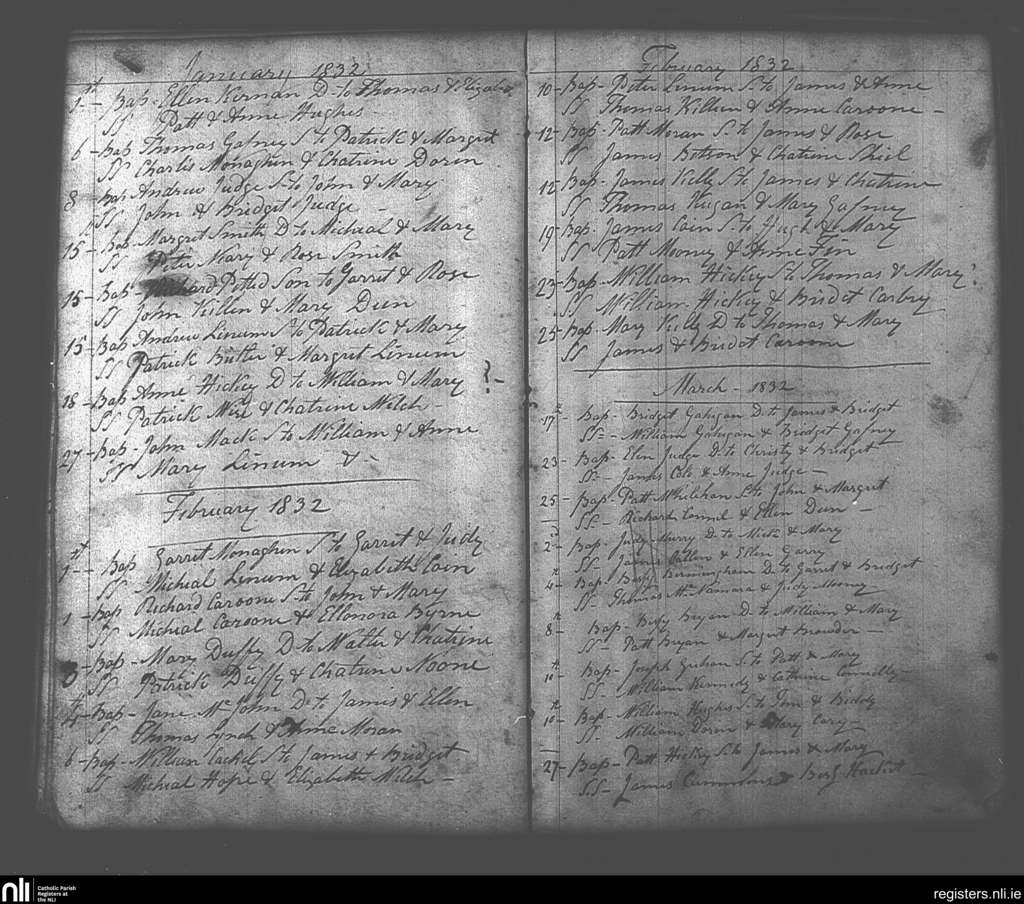 January 1832
1st - Bap- Ellen Kernan D to Thomas & Elizabh
SS Patt & Anne Hughes
6 - Bap Thomas Gafney S to Patrick & Margrit
SS Charles Monaghin & Chatrine Dorin
8 Bap Andrew Judge S to John & Mary
SS John & Bridget Judge -
15 - Bap Margret Smith D to Micheal & Mary
SS Peter Mary & Rose Smith
15 - Bap- Richard Petted Son to Garret & Rose
SS John Killen & Mary Dun
15 - Bap Andrew Linum S to Patrick & Mary
SS Patrick Butler & Margret Linum
18 - Bap Anne Hickey D to William & Mary ?-
SS Patrick Wire & Chatrine Welch
27 - Bap- John Mack S to William & Anne
SS Mary Linum & -
February 1832
1st - Bap Garrit Monaghin S to Garrit & Judy
SS Micheal Linum & Elizabeth Coin
1 - Bap Richard Caroone S to John & Mary
SS Micheal Caroone & Ellonora Byrne
3 - Bap- Mary Duffy D to Walter & Chatrine
SS Patrick Duffy & Chatrine Noone
4th - Bap- Jane Mc John D to James & Ellen
SS Thomas Lynch & Anne Moran
6 - Bap- William Cachel S to James & Bridget
SS Micheal Hope & Elizabeth Welch -
February 1832
10 - Bap- Peter Linum S to James & Anne
SS Thomas Killen & Anne Caroone -
12 - Bap- Patt Moran S to James & Rose
SS James Botson & Chatrine Shiel
12 - Bap- James Kelly S to James & Chatrine
SS Thomas Hugan & Mary Gafney
19 - Bap- James Cain S to Hugh & Mary
SS Patt Mooney & Anne Fin
23 - Bap- William Hickey S to Thomas & Mary ?
SS William Hickey & Bridet Carbry
25 Bap- Mary Kelly D to Thomas & Mary
SS James & Bridet Caroone
March - 1832
17th - Bap- Bridget Gahigan D to James & Bridget
SS - William Gahigan & Bridget Gafney
23 - Bap- Elen Judge D to Christy & Bridget
SS - James Cole & Anne Judge -
25 - Bap- Patt Whilehan S to John & Margret
SS - Richard Connel & Ellen Dun -
2d - Bap- Judy Murry D to Mich & Mary
SS - James Cullen & Ellen Garry
4th - Bap- Betsy Birmingham D to Garrit & Bridget
SS - Thomas McNamara & Judy Mooney
8th - Bap- Betsy Bryan D to William & Mary
SS - Patt Bryan & Margret Browder -
10th - Bap- Joseph Grehan S to Patt & Mary
SS - William Kennedy & Cathrine Connelly
10th - Bap- William Hughes S to Tim & Biddy
SS - William Dorin & Mary Cary -
27 - Bap- Patt Hickey S to James & Mary
SS - James Cummins & Betsy Hacket -
nli
Catholic Parish
Registers at
the NLI
registers.nli.ie